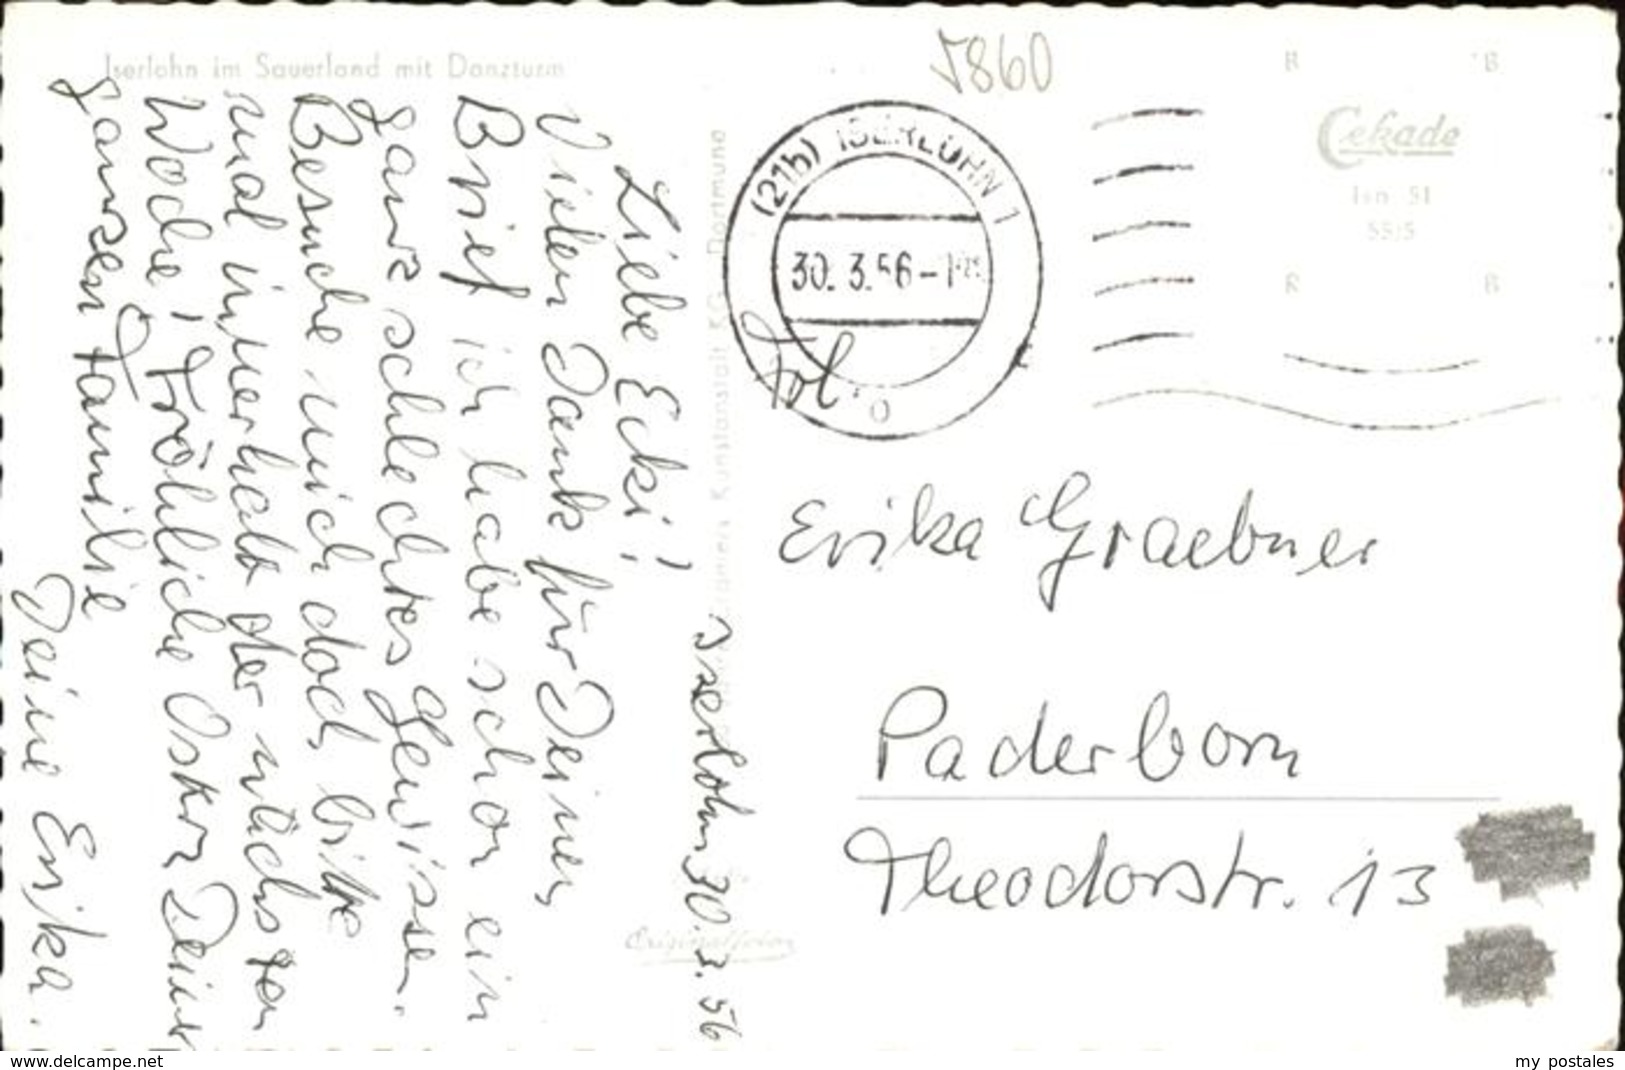 Iserlohn im Sauerland mit Danzturm
5860
(21b) ISERLOHN 1
30. 3. 56-
Cekade
Isn 51
Iserlohn 30.3.56
Liebe Ecki!
Vielen Dank für Deinen
Brief ich habe schon ein
ganz schlechtes Gewissen.
Besuche mich doch bitte
mal innerhalb der nächsten
Woche! Fröhliche Ostern Deiner
ganzen Familie
Deine Erika.
Kunstanstalt KG. Dortmund
Originalfoto
Erika Graebner
Paderborn
Theodorstr. 13
www.delcampe.net
my postales